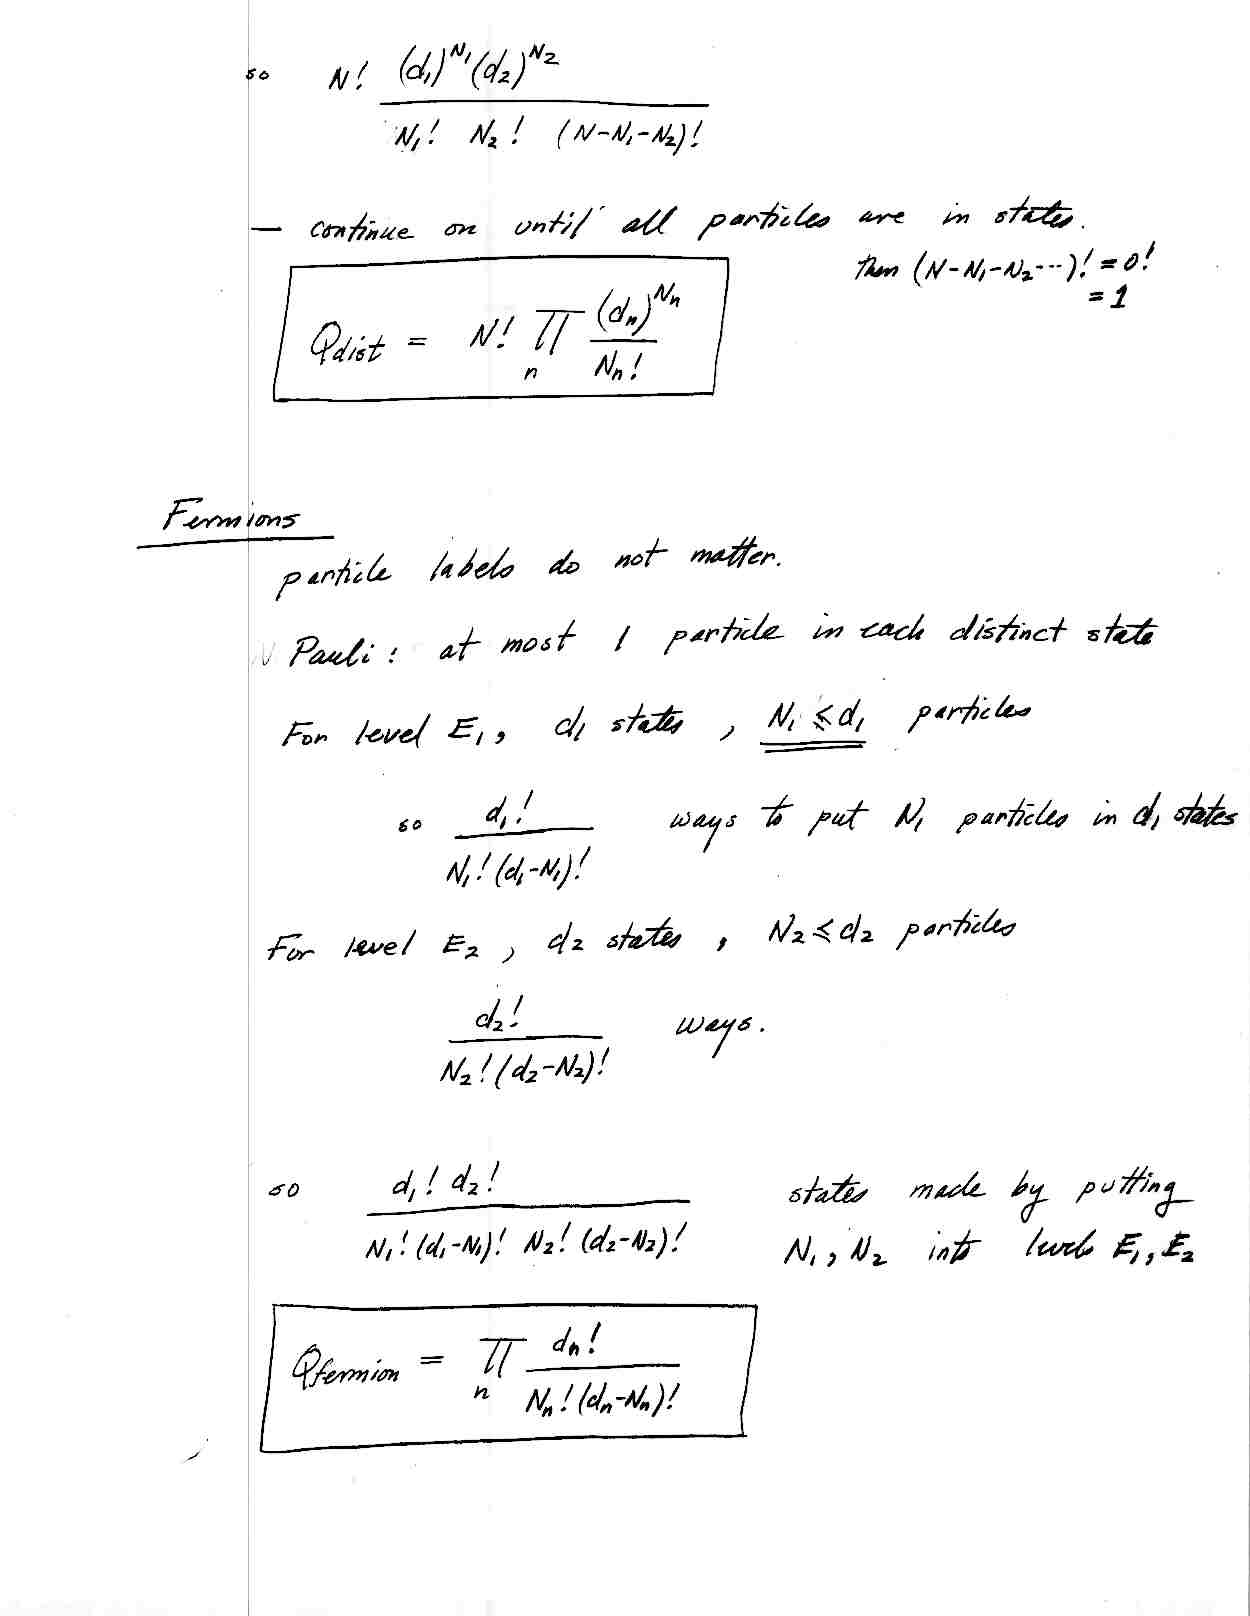 so N! (d₁)^N₁ (d₂)^N₂ / N₁! N₂! (N-N₁-N₂)!
— continue on until all particles are in states.
then (N-N₁-N₂---)! = 0!
= 1
Qdist = N! ∏n (dn)^Nn / Nn!
Fermions
particle labels do not matter.
Pauli: at most 1 particle in each distinct state
For level E₁, d₁ states, N₁ ≤ d₁ particles
so d₁! / N₁! (d₁-N₁)! ways to put N₁ particles in d₁ states
For level E₂, d₂ states, N₂ ≤ d₂ particles
d₂! / N₂! (d₂-N₂)! ways.
so d₁! d₂! / N₁! (d₁-N₁)! N₂! (d₂-N₂)! states made by putting
N₁, N₂ into levels E₁, E₂
Qfermion = ∏n dn! / Nn! (dn-Nn)!